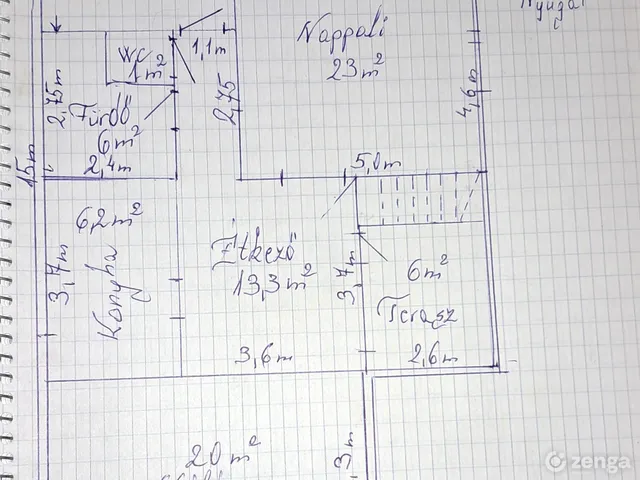 Nyuga
Nappali
23 m²
WC
1 m²
1,1m
2,75m
Fürdő
6 m²
2,4m
2,75
4,6m
15m
5,0m
6,2 m²
3,7m
Konyha
Étkező
13,3 m²
3,7m
6 m²
Terasz
3,6m
2,6m
20 m²
3m
zenga